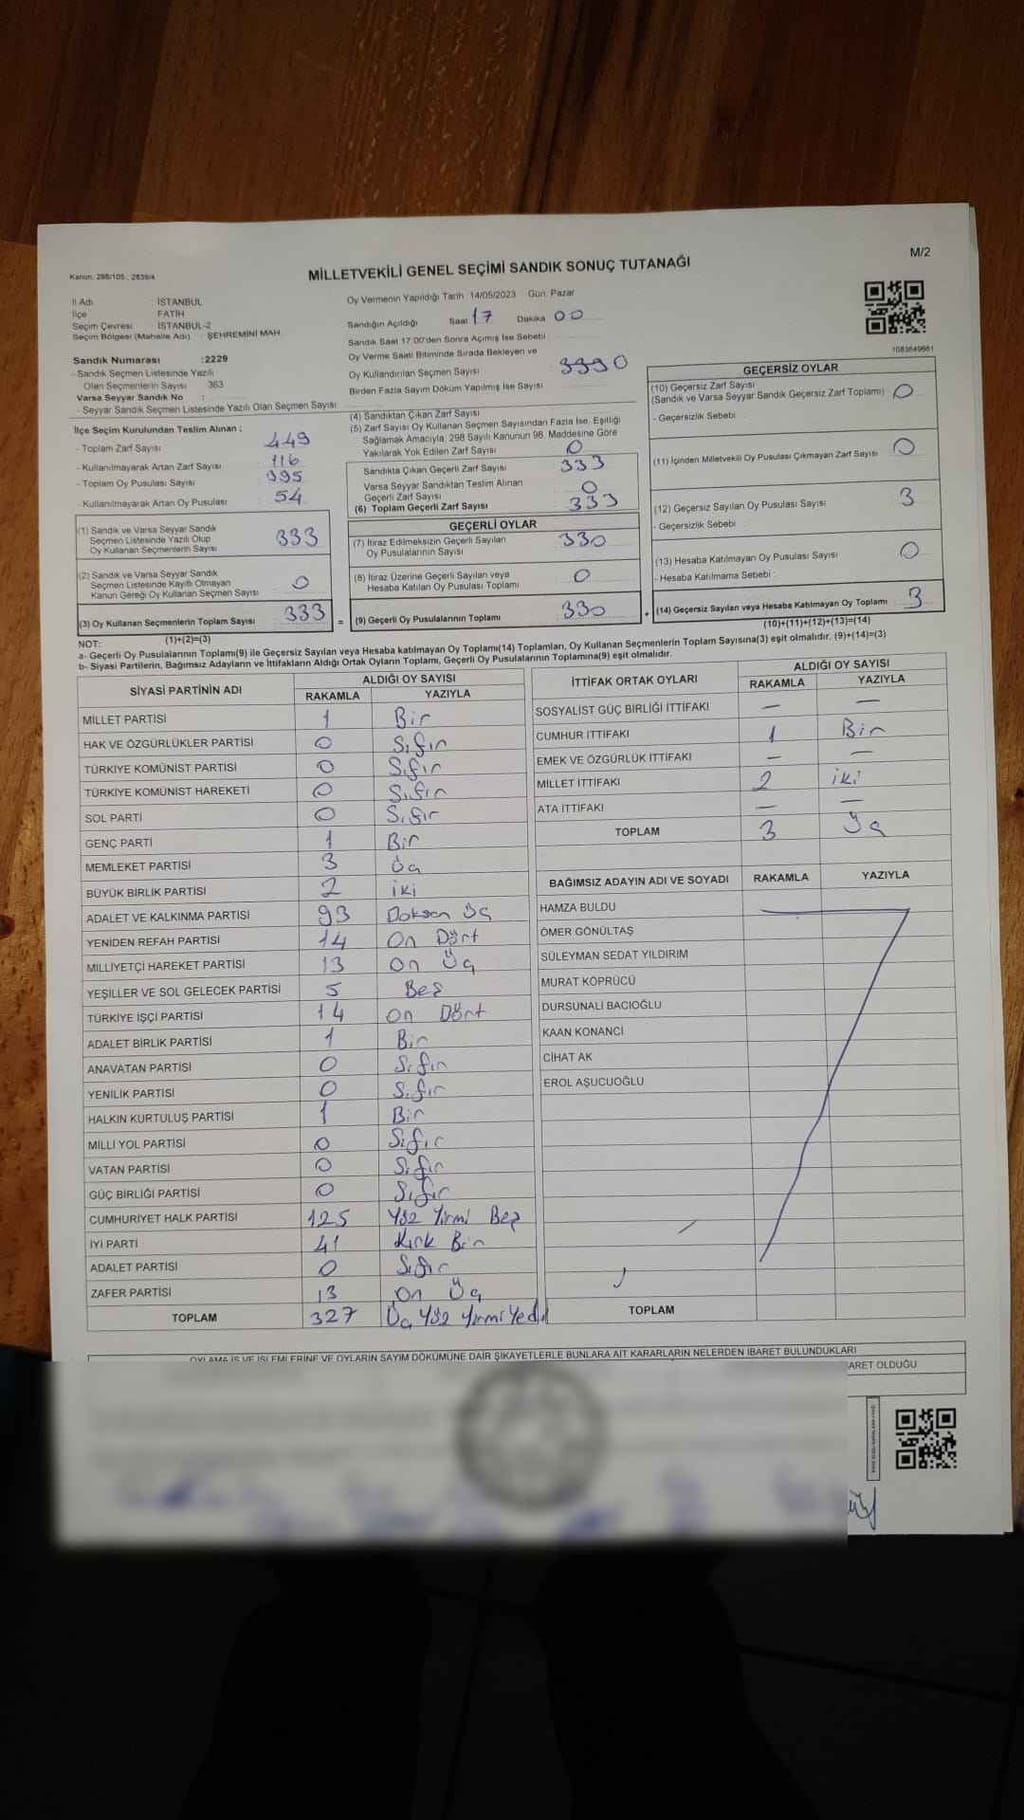 M/2
Kanun: 298/105 ; 2839/4
MİLLETVEKİLİ GENEL SEÇİMİ SANDIK SONUÇ TUTANAĞI
İl Adı İSTANBUL
İlçe FATİH
Seçim Çevresi İSTANBUL-2
Seçim Bölgesi (Mahalle Adı) : ŞEHREMİNİ MAH
Sandık Numarası :2229
- Sandık Seçmen Listesinde Yazılı
Olan Seçmenlerin Sayısı 363
Varsa Seyyar Sandık No :
- Seyyar Sandık Seçmen Listesinde Yazılı Olan Seçmen Sayısı
Oy Vermenin Yapıldığı Tarih :14/05/2023 Gün: Pazar
Sandığın Açıldığı Saat 17 Dakika 00
Sandık Saat 17:00'den Sonra Açımış İse Sebebi
Oy Verme Saati Bitiminde Sırada Bekleyen ve
Oy Kullandırılan Seçmen Sayısı
Birden Fazla Sayım Döküm Yapılmış İse Sayısı
1083649661
İlçe Seçim Kurulundan Teslim Alınan :
- Toplam Zarf Sayısı 449
- Kullanılmayarak Artan Zarf Sayısı 116
- Toplam Oy Pusulası Sayısı
- Kullanılmayarak Artan Oy Pusulası 54
(1) Sandık ve Varsa Seyyar Sandık
Seçmen Listesinde Yazılı Olup
Oy Kullanan Seçmenlerin Sayısı 333
(2) Sandık ve Varsa Seyyar Sandık
Seçmen Listesinde Kayıtlı Olmayan
Kanun Gereği Oy Kullanan Seçmen Sayısı 0
(3) Oy Kullanan Seçmenlerin Toplam Sayısı 333
(1)+(2)=(3)
(4) Sandıktan Çıkan Zarf Sayısı
(5) Zarf Sayısı Oy Kullanan Seçmen Sayısından Fazla İse, Eşitliği
Sağlamak Amacıyla; 298 Sayılı Kanunun 98. Maddesine Göre
Yakılarak Yok Edilen Zarf Sayısı 0
Sandıkta Çıkan Geçerli Zarf Sayısı 333
Varsa Seyyar Sandıktan Teslim Alınan
Geçerli Zarf Sayısı 0
(6) Toplam Geçerli Zarf Sayısı 333
GEÇERLİ OYLAR
(7) İtiraz Edilmeksizin Geçerli Sayılan
Oy Pusulalarının Sayısı 330
(8) İtiraz Üzerine Geçerli Sayılan veya
Hesaba Katılan Oy Pusulası Toplamı 0
= (9) Geçerli Oy Pusulalarının Toplamı 330 +
GEÇERSİZ OYLAR
(10) Geçersiz Zarf Sayısı
(Sandık ve Varsa Seyyar Sandık Geçersiz Zarf Toplamı) 0
- Geçersizlik Sebebi
(11) İçinden Milletvekili Oy Pusulası Çıkmayan Zarf Sayısı 0
(12) Geçersiz Sayılan Oy Pusulası Sayısı 3
- Geçersizlik Sebebi
(13) Hesaba Katılmayan Oy Pusulası Sayısı 0
- Hesaba Katılmama Sebebi
(14) Geçersiz Sayılan veya Hesaba Katılmayan Oy Toplamı 3
(10)+(11)+(12)+(13)=(14)
NOT:
a- Geçerli Oy Pusulalarının Toplamı(9) ile Geçersiz Sayılan veya Hesaba katılmayan Oy Toplamı(14) Toplamları, Oy Kullanan Seçmenlerin Toplam Sayısına(3) eşit olmalıdır. (9)+(14)=(3)
b- Siyasi Partilerin, Bağımsız Adayların ve İttifakların Aldığı Ortak Oyların Toplamı, Geçerli Oy Pusulalarının Toplamına(9) eşit olmalıdır.
SİYASİ PARTİNİN ADI ALDIĞI OY SAYISI
RAKAMLA YAZIYLA
MİLLET PARTİSİ 1 Bir
HAK VE ÖZGÜRLÜKLER PARTİSİ 0 Sıfır
TÜRKİYE KOMÜNİST PARTİSİ 0 Sıfır
TÜRKİYE KOMÜNİST HAREKETİ 0 Sıfır
SOL PARTİ 0 Sıfır
GENÇ PARTİ 1 Bir
MEMLEKET PARTİSİ 3 Üç
BÜYÜK BİRLİK PARTİSİ 2 iki
ADALET VE KALKINMA PARTİSİ 93 Doksan Üç
YENİDEN REFAH PARTİSİ 14 On Dört
MİLLİYETÇİ HAREKET PARTİSİ 13 On Üç
YEŞİLLER VE SOL GELECEK PARTİSİ 5 Beş
TÜRKİYE İŞÇİ PARTİSİ 14 On Dört
ADALET BİRLİK PARTİSİ 1 Bir
ANAVATAN PARTİSİ 0 Sıfır
YENİLİK PARTİSİ 0 Sıfır
HALKIN KURTULUŞ PARTİSİ 1 Bir
MİLLİ YOL PARTİSİ 0 Sıfır
VATAN PARTİSİ 0 Sıfır
GÜÇ BİRLİĞİ PARTİSİ 0 Sıfır
CUMHURİYET HALK PARTİSİ 125 Yüz Yirmi Beş
İYİ PARTİ 41 Kırk Bir
ADALET PARTİSİ 0 Sıfır
ZAFER PARTİSİ 13 On Üç
TOPLAM 327 Üç Yüz Yirmi Yedi
İTTİFAK ORTAK OYLARI ALDIĞI OY SAYISI
RAKAMLA YAZIYLA
SOSYALİST GÜÇ BİRLİĞİ İTTİFAKI — —
CUMHUR İTTİFAKI 1 Bir
EMEK VE ÖZGÜRLÜK İTTİFAKI — —
MİLLET İTTİFAKI 2 iki
ATA İTTİFAKI — —
TOPLAM 3 Üç
BAĞIMSIZ ADAYIN ADI VE SOYADI RAKAMLA YAZIYLA
HAMZA BULDU
ÖMER GÖNÜLTAŞ
SÜLEYMAN SEDAT YILDIRIM
MURAT KÖPRÜCÜ
DURSUNALİ BACIOĞLU
KAAN KONANCİ
CİHAT AK
EROL AŞUCUOĞLU
TOPLAM
OYLAMA İŞ VE İŞLEMLERİNE VE OYLARIN SAYIM DÖKÜMÜNE DAİR ŞİKAYETLERLE BUNLARA AİT KARARLARIN NELERDEN İBARET BULUNDUKLARI
ARET OLDUĞU